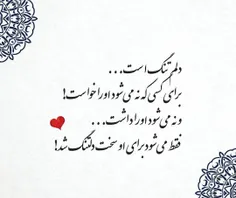 دلم تنگ است...
برای کسی که نه می شود او را خواست!
و نه می شود او را داشت...
فقط می شود برای او سخت دلتنگ شد!